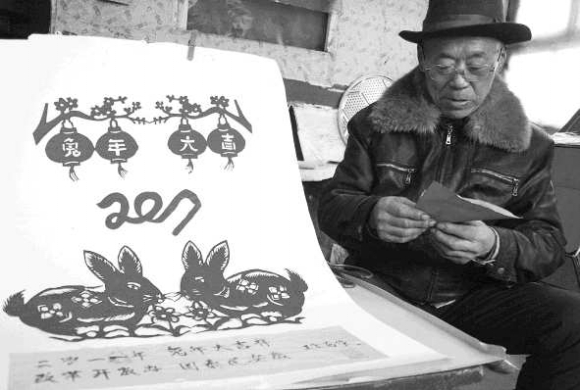 兔年大吉
2011
二〇一一年 兔年大吉祥
改革开放 国泰民安